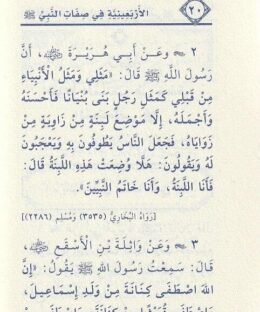 ٢٠ الأَرْبَعِينِيَّة فِي صِفَاتِ النَّبِيِّ ﷺ
٢ وعَنْ أَبِي هُرَيْرَةَ ﷺ، أَنَّ
رَسُولَ اللَّهِ ﷺ قَالَ: «مَثَلِي وَمَثَلُ الْأَنْبِيَاءِ
مِنْ قَبْلِي كَمَثَلِ رَجُلٍ بَنَى بُنْيَانًا فَأَحْسَنَهُ
وَأَجْمَلَهُ، إِلَّا مَوْضِعَ لَبِنَةٍ مِنْ زَاوِيَةٍ مِنْ
زَوَايَاهُ، فَجَعَلَ النَّاسُ يَطُوفُونَ بِهِ وَيَعْجَبُونَ
لَهُ وَيَقُولُونَ: هَلَّا وُضِعَتْ هَذِهِ اللَّبِنَةُ قَالَ:
فَأَنَا اللَّبِنَةُ، وَأَنَا خَاتَمُ النَّبِيِّينَ».
[رَوَاهُ الْبُخَارِيُّ (٣٥٣٥) وَمُسْلِم (٢٢٨٦)]
٣ وعَنْ وَاثِلَةَ بْنِ الْأَسْقَعِ
قَالَ: سَمِعْتُ رَسُولَ اللَّهِ ﷺ يَقُولُ: «إِنَّ
اللَّهَ اصْطَفَى كِنَانَةَ مِنْ وَلَدِ إِسْمَاعِيلَ،